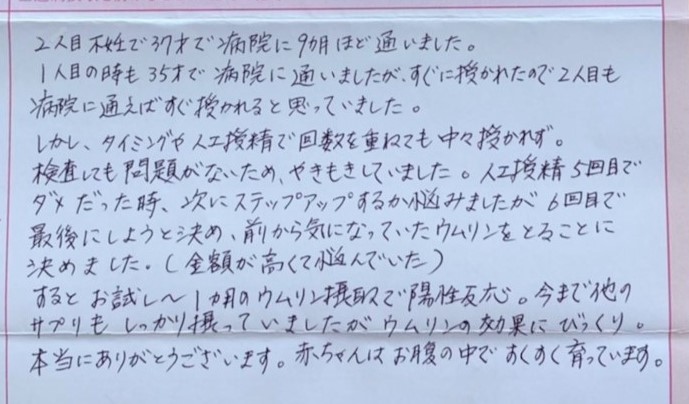 2人目不妊で37才で病院に9カ月ほど通いました。
1人目の時も35才で病院に通いましたが、すぐに授かれたので2人目も
病院に通えばすぐ授かれると思っていました。
しかし、タイミングや人工授精で回数を重ねても中々授かれず。
検査しても問題がないため、やきもきしていました。人工授精5回目で
ダメだった時、次にステップアップするか悩みましたが6回目で
最後にしようと決め、前から気になっていたウムリンをとることに
決めました。(金額が高くて悩んでいた)
するとお試し〜1カ月のウムリン摂取で陽性反応。今まで他の
サプリもしっかり摂っていましたがウムリンの効果にびっくり。
本当にありがとうございます。赤ちゃんはお腹の中ですくすく育っています。